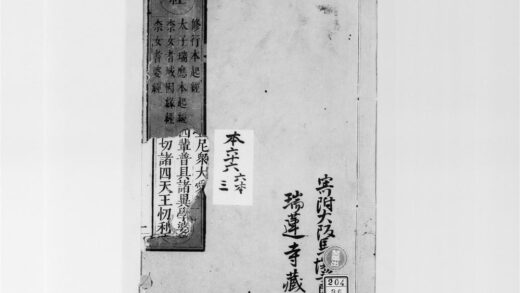 修行本起經
太子瑞應本起經
柰女耆域因緣經
柰女耆婆經
尼衆大愛
四輩普具諸異學婆
切諸四天王忉利
本六十六
六本
三
寄附大阪馬
瑞蓮寺藏
204